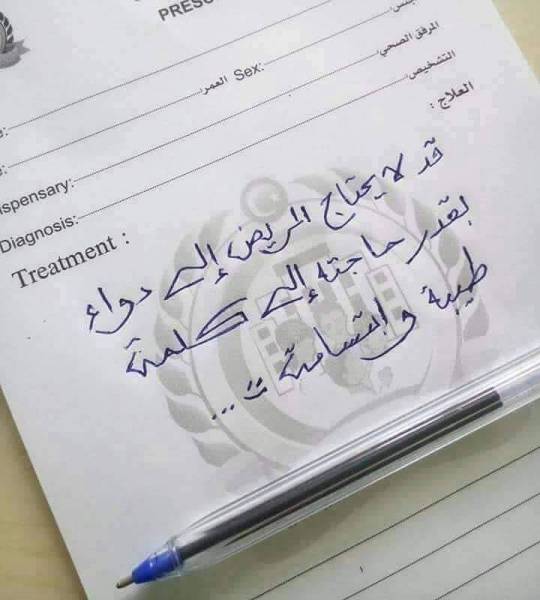 PRESC
Sex: العمر
المرفق الصحي
التشخيص
ispensary:
Diagnosis:
العلاج :
Treatment :
قد لا يحتاج المريض إلى دواء
بقدر حاجته إلى كلمة
طيبة وابتسامة :) ...